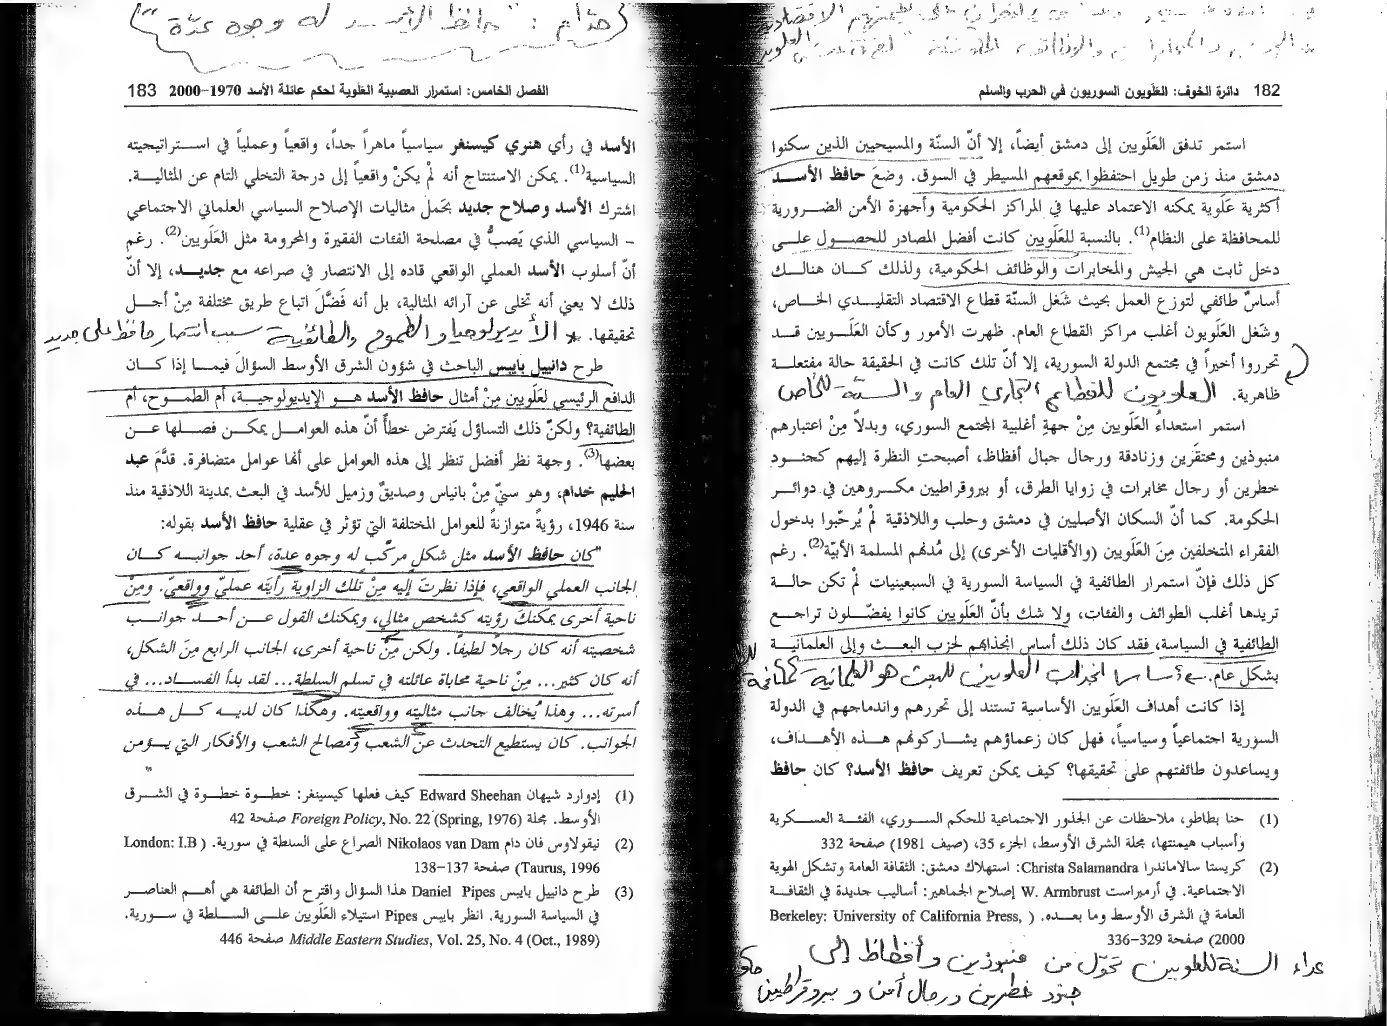 182 دائرة الخوف: العَلَويون السوريون في الحرب والسلم
استمر تدفق العَلَويين إلى دمشق أيضاً، إلا أنّ السنّة والمسيحيين الذين سكنوا
دمشق منذ زمن طويل احتفظوا بموقعهم المسيطر في السوق. وضعَ حافظ الأسد
أكثرية عَلَوية يمكنه الاعتماد عليها في المراكز الحكومية وأجهزة الأمن الضرورية
للمحافظة على النظام(1). بالنسبة للعَلَويين كانت أفضل المصادر للحصول على
دخل ثابت هي الجيش والمخابرات والوظائف الحكومية، ولذلك كان هنالك
أساسٌ طائفي لتوزع العمل بحيث شَغل السنّة قطاع الاقتصاد التقليدي الخاص،
وشغل العَلَويون أغلب مراكز القطاع العام. ظهرت الأمور وكأن العَلَويين قد
تحرروا أخيراً في مجتمع الدولة السورية، إلا أنّ تلك كانت في الحقيقة حالة مفتعلة
ظاهرية. العلويون للقطاع التجاري العام والسنّة للخاص
استمر استعداءُ العَلَويين مِنْ جهةِ أغلبية المجتمع السوري، وبدلاً مِنْ اعتبارهم
منبوذين ومحتقَرين وزنادقة ورجال جبال أفظاظ، أصبحتِ النظرة إليهم كجنود
خطرين أو رجال مخابرات في زوايا الطرق، أو بيروقراطيين مكروهين في دوائر
الحكومة. كما أنّ السكان الأصليين في دمشق وحلب واللاذقية لَمْ يُرحّبوا بدخول
الفقراء المتخلفين مِنَ العَلَويين (والأقليات الأخرى) إلى مُدنهم المسلمة الأبيّة(2). رغم
كل ذلك فإنّ استمرار الطائفية في السياسة السورية في السبعينيات لَمْ تكن حالة
تريدها أغلب الطوائف والفئات، ولا شك بأنّ العَلَويين كانوا يفضّلون تراجع
الطائفية في السياسة، فقد كان ذلك أساس انجذابهم لحزب البعث وإلى العلمانية
بشكل عام. أساس انجذاب العلويين للبعث هو العلمانية
إذا كانت أهداف العَلَويين الأساسية تستند إلى تحررهم واندماجهم في الدولة
السورية اجتماعياً وسياسياً، فهل كان زعماؤهم يشاركونهم هذه الأهداف،
ويساعدون طائفتهم على تحقيقها؟ كيف يمكن تعريف حافظ الأسد؟ كان حافظ
(1) حنا بطاطو، ملاحظات عن الجذور الاجتماعية للحكم السوري، الفئة العسكرية
وأسباب هيمنتها، مجلة الشرق الأوسط، الجزء 35، (صيف 1981) صفحة 332
(2) كريستا سالاماندرا Christa Salamandra: استهلاك دمشق: الثقافة العامة وتشكل الهوية
الاجتماعية. في أرمبراست W. Armbrust إصلاح الجماهير: أساليب جديدة في الثقافة
العامة في الشرق الأوسط وما بعده. (Berkeley: University of California Press,
2000) صفحة 329-336
عداء السنة للعلويين تحوّل من منبوذين وأفظاظ إلى
جنود خطرين ورجال أمن و بيروقراطيين
خدّام: "حافظ الأسد له وجوه عدّة"
الفصل الخامس: استمرار العصبية العَلَوية لحكم عائلة الأسد 1970-2000 183
الأسد في رأي هنري كيسنغر سياسياً ماهراً جداً، واقعياً وعملياً في استراتيجيته
السياسية(1). يمكن الاستنتاج أنه لَمْ يكنْ واقعياً إلى درجة التخلي التام عن المثالية.
اشترك الأسد وصلاح جديد بحَمل مثاليات الإصلاح السياسي العلماني الاجتماعي
– السياسي الذي يَصبُّ في مصلحة الفئات الفقيرة والمحرومة مثل العَلَويين(2). رغم
أنّ أسلوب الأسد العملي الواقعي قاده إلى الانتصار في صراعه مع جديد، إلا أنّ
ذلك لا يعني أنه تخلى عن آرائه المثالية، بل أنه فَضَّلَ اتباع طريق مختلفة مِنْ أجل
تحقيقها. * الأيديولوجيا والطموح والطائفية سبب انتصار حافظ على جديد
طرح دانييل بايبس الباحث في شؤون الشرق الأوسط السؤالَ فيما إذا كان
الدافع الرئيسي لعَلَويين مِنْ أمثال حافظ الأسد هو الإيديولوجية، أم الطموح، أم
الطائفية؟ ولكنّ ذلك التساؤل يَفترض خطأً أنّ هذه العوامل يمكن فصلها عن
بعضها(3). وجهة نظر أفضل تنظر إلى هذه العوامل على أنها عوامل متضافرة. قدَّمَ عبد
الحليم خدام، وهو سنّيّ مِنْ بانياس وصديقٌ وزميل للأسد في البعث بمدينة اللاذقية منذ
سنة 1946، رؤيةً متوازنةً للعوامل المختلفة التي تؤثر في عقلية حافظ الأسد بقوله:
"كان حافظ الأسد مثل شكلٍ مركّبٍ له وجوه عدة، أحد جوانبه كان
الجانب العملي الواقعي، فإذا نظرتَ إليه مِنْ تلك الزاوية رأيتَه عمليّ وواقعيّ. ومِنْ
ناحية أخرى يمكنكَ رؤيته كشخص مثالي، ويمكنك القول عن أحد جوانب
شخصيته أنه كان رجلاً لطيفاً. ولكن مِنْ ناحية أخرى، الجانب الرابع مِنَ الشكل،
أنه كان كثير... مِنْ ناحية محاباة عائلته في تسلم السلطة... لقد بدأ الفساد... في
أسرته... وهذا يُخالف جانب مثاليته وواقعيته. وهكذا كان لديه كل هذه
الجوانب. كان يستطيع التحدث عن الشعب ومصالح الشعب والأفكار التي يؤمن
(1) إدوارد شيهان Edward Sheehan كيف فعلها كيسينغر: خطوة خطوة في الشرق
الأوسط. مجلة Foreign Policy, No. 22 (Spring, 1976) صفحة 42
(2) نيقولاوس فان دام Nikolaos van Dam الصراع على السلطة في سورية. (London: I.B
Taurus, 1996) صفحة 137-138
(3) طرح دانييل بايبس Daniel Pipes هذا السؤال واقترح أن الطائفة هي أهم العناصر
في السياسة السورية. انظر بايبس Pipes استيلاء العَلَويين على السلطة في سورية.
Middle Eastern Studies, Vol. 25, No. 4 (Oct., 1989) صفحة 446